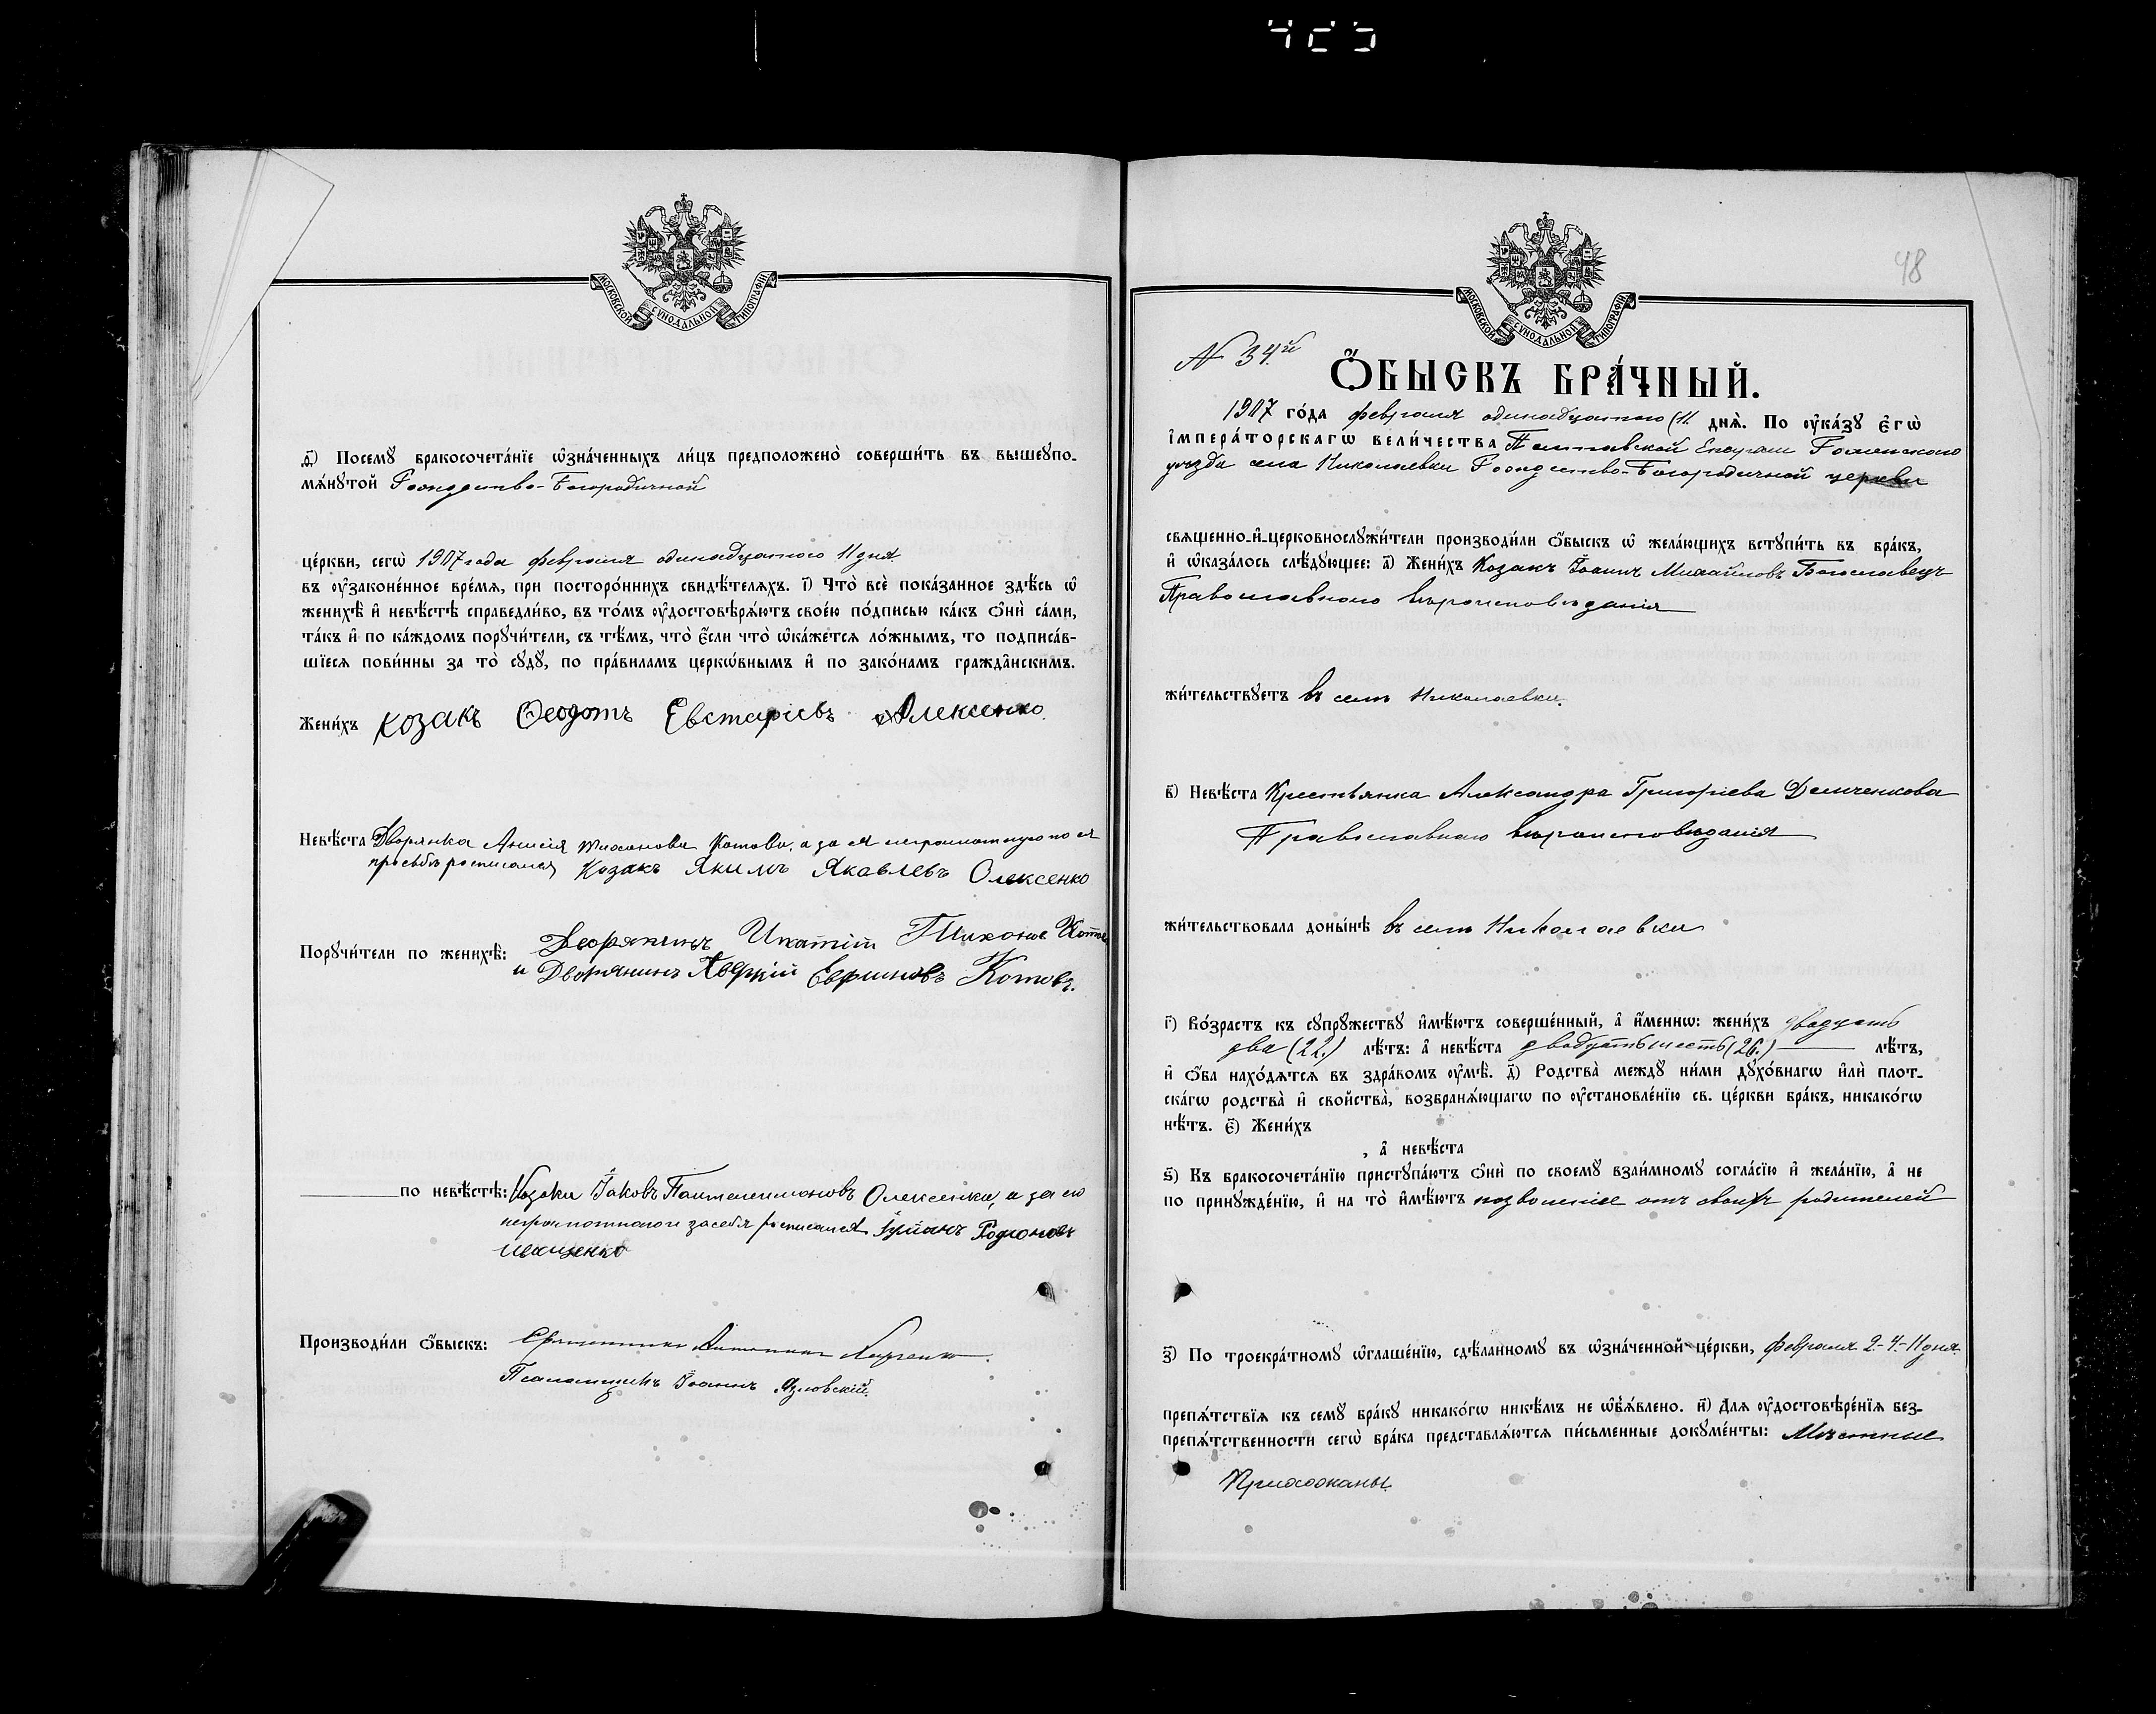 МОСКОВСКОЙ СѴНОДАЛЬНОЙ ТИПОГРАФІИ
д҃) Посемꙋ̀ бракосочета́нїе ѡ҆зна́ченныхъ ли́цъ предположено̀ соверши́ть въ вышеꙋпо-
мѧ́нꙋтой Рождество-Богородичной
це́ркви, сегѡ̀ 1907 года февраля одинадцатого 11 дня
въ ᲂу҆законе́нное вре́мѧ, при посторо́ннихъ свидѣ́телѧхъ. і҃) Что̀ всѐ пока́занное здѣ́сь ѡ҆
женихѣ̀ и҆ невѣ́стѣ справедли́во, въ то́мъ ᲂу҆достовѣрѧ́ютъ свое́ю по́дписью ка́къ ѻ҆нѝ са́ми,
та́къ и҆ по ка́ждомъ порꙋчи́тели, съ тѣ́мъ, что̀ є҆́сли что̀ ѡ҆ка́жетсѧ ло́жнымъ, то подписа́в-
шїесѧ пови́нны за то̀ сꙋдꙋ̀, по пра́виламъ церкѡ́внымъ и҆ по зако́намъ гражда̑нскимъ.
Жени́хъ козакъ Ѳеодотъ Евстафіевъ Алексенко.
Невѣ́ста Дворянка Анисія Тихонова Котова, а за ея неграмотную по ея
просьбѣ росписался Козакъ Якимъ Яковлевъ Олексенко
Порꙋчи́тели по женихѣ̀: Дворянинъ Ипатій Тихонов Котов
и Дворянинъ Аверкій Евфимовъ Котовъ.
по невѣ́стѣ: Козаки Іаковъ Пантелеимоновъ Олексенко, а за его
неграмотнаго и за себя росписался Гуліанъ Родіоновъ
Ищенко
Производи́ли ѻ҆́быскъ: Священникъ Антоній
Псаломщикъ Іоаннъ Язловскій.
48
МОСКОВСКОЙ СѴНОДАЛЬНОЙ ТИПОГРАФІИ
N 34.й
Ѻ҆́БЫСКЪ БРА́ЧНЫЙ.
1907 го́да февраля одинадцатого (11. днѧ̀. По ᲂу҆ка́зꙋ є҆гѡ̀
і҆мпера́торскагѡ вели́чества Полтавской Епархіи Роменского
уѣзда села Николаевки Рождество-Богородичной церкви
свѧщенно-и҆-церковнослꙋжи́тели производи́ли ѻ҆́быскъ ѡ҆ жела́ющихъ встꙋпи́ть въ бра́къ,
и҆ ѡ҆каза́лось слѣ́дꙋющее: а҃) Жени́хъ Козакъ Іоаннъ Михайловъ Богославецъ
Православного вѣроисповѣданія
жи́тельствꙋетъ въ селѣ Николаевки.
в҃) Невѣ́ста Крестьянка Александра Григоріева Демченкова
Православнаго вѣроисповѣданія
жи́тельствовала доны́нѣ въ селѣ Николаевки
г҃) Во́зрастъ къ сꙋпрꙋ́жествꙋ и҆мѣ́ютъ соверше́нный, а҆ и҆́меннѡ: жени́хъ двадцать
два (22.) лѣ́тъ: а҆ невѣ́ста двадцать шесть (26.) лѣ́тъ,
и҆ ѻ҆́ба нахо́дѧтсѧ въ здра́вомъ ᲂу҆мѣ̀. д҃) Родства̀ междꙋ̀ ни́ми дꙋхо́внагѡ и҆лѝ плот-
ска́гѡ родства̀ и҆ сво́йства, возбранѧ́ющагѡ по ᲂу҆становле́нїю св. це́ркви бра́къ, никако́гѡ
нѣ́тъ. є҃) Жени́хъ
, а҆ невѣ́ста
ѕ҃) Къ бракосочета́нїю пристꙋпа́ютъ ѻ҆нѝ по своемꙋ̀ взаи́мномꙋ согла́сїю и҆ жела́нїю, а҆ не
по принꙋжде́нїю, и҆ на то̀ и҆мѣ́ютъ позволеніе отъ своихъ родителей
з҃) По троекра́тномꙋ ѡ҆глаше́нїю, сдѣ́ланномꙋ въ ѡ҆зна́ченной це́ркви, февраля 2-4-11 дня.
препѧ́тствїѧ къ семꙋ̀ бра́кꙋ никако́гѡ никѣ́мъ не ѡ҆б̾ѧ́влено. и҃) Длѧ ᲂу҆достовѣре́нїѧ без-
препѧ́тственности сегѡ̀ бра́ка представлѧ́ютсѧ пи́сьменные докꙋме́нты: Мѣстные
Прихожаны.